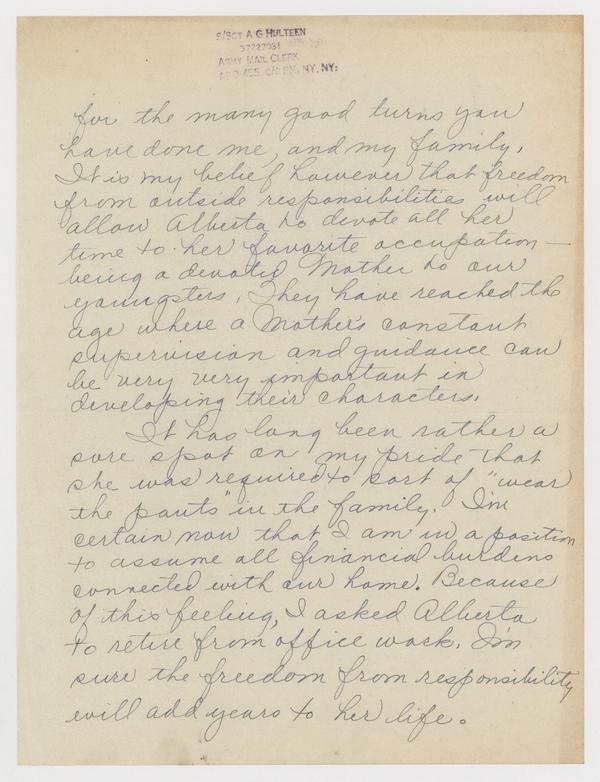 S/SGT A G HULTEEN
37227031
ARMY MAIL CLERK
APO 455, C/O PM, NY, NY:
for the many good turns you
have done me, and my family.
It is my belief however that freedom
from outside responsibilities will
allow Alberta to devote all her
time to her favorite occupation —
being a devoted Mother to our
youngsters. They have reached the
age where a Mother's constant
supervision and guidance can
be very very important in
developing their characters.
It has long been rather a
sore spot on my pride that
she was required to sort of "wear
the pants" in the family. I'm
certain now that I am in a position
to assume all financial burdens
connected with our home. Because
of this feeling, I asked Alberta
to retire from office work. I'm
sure the freedom from responsibility
will add years to her life.